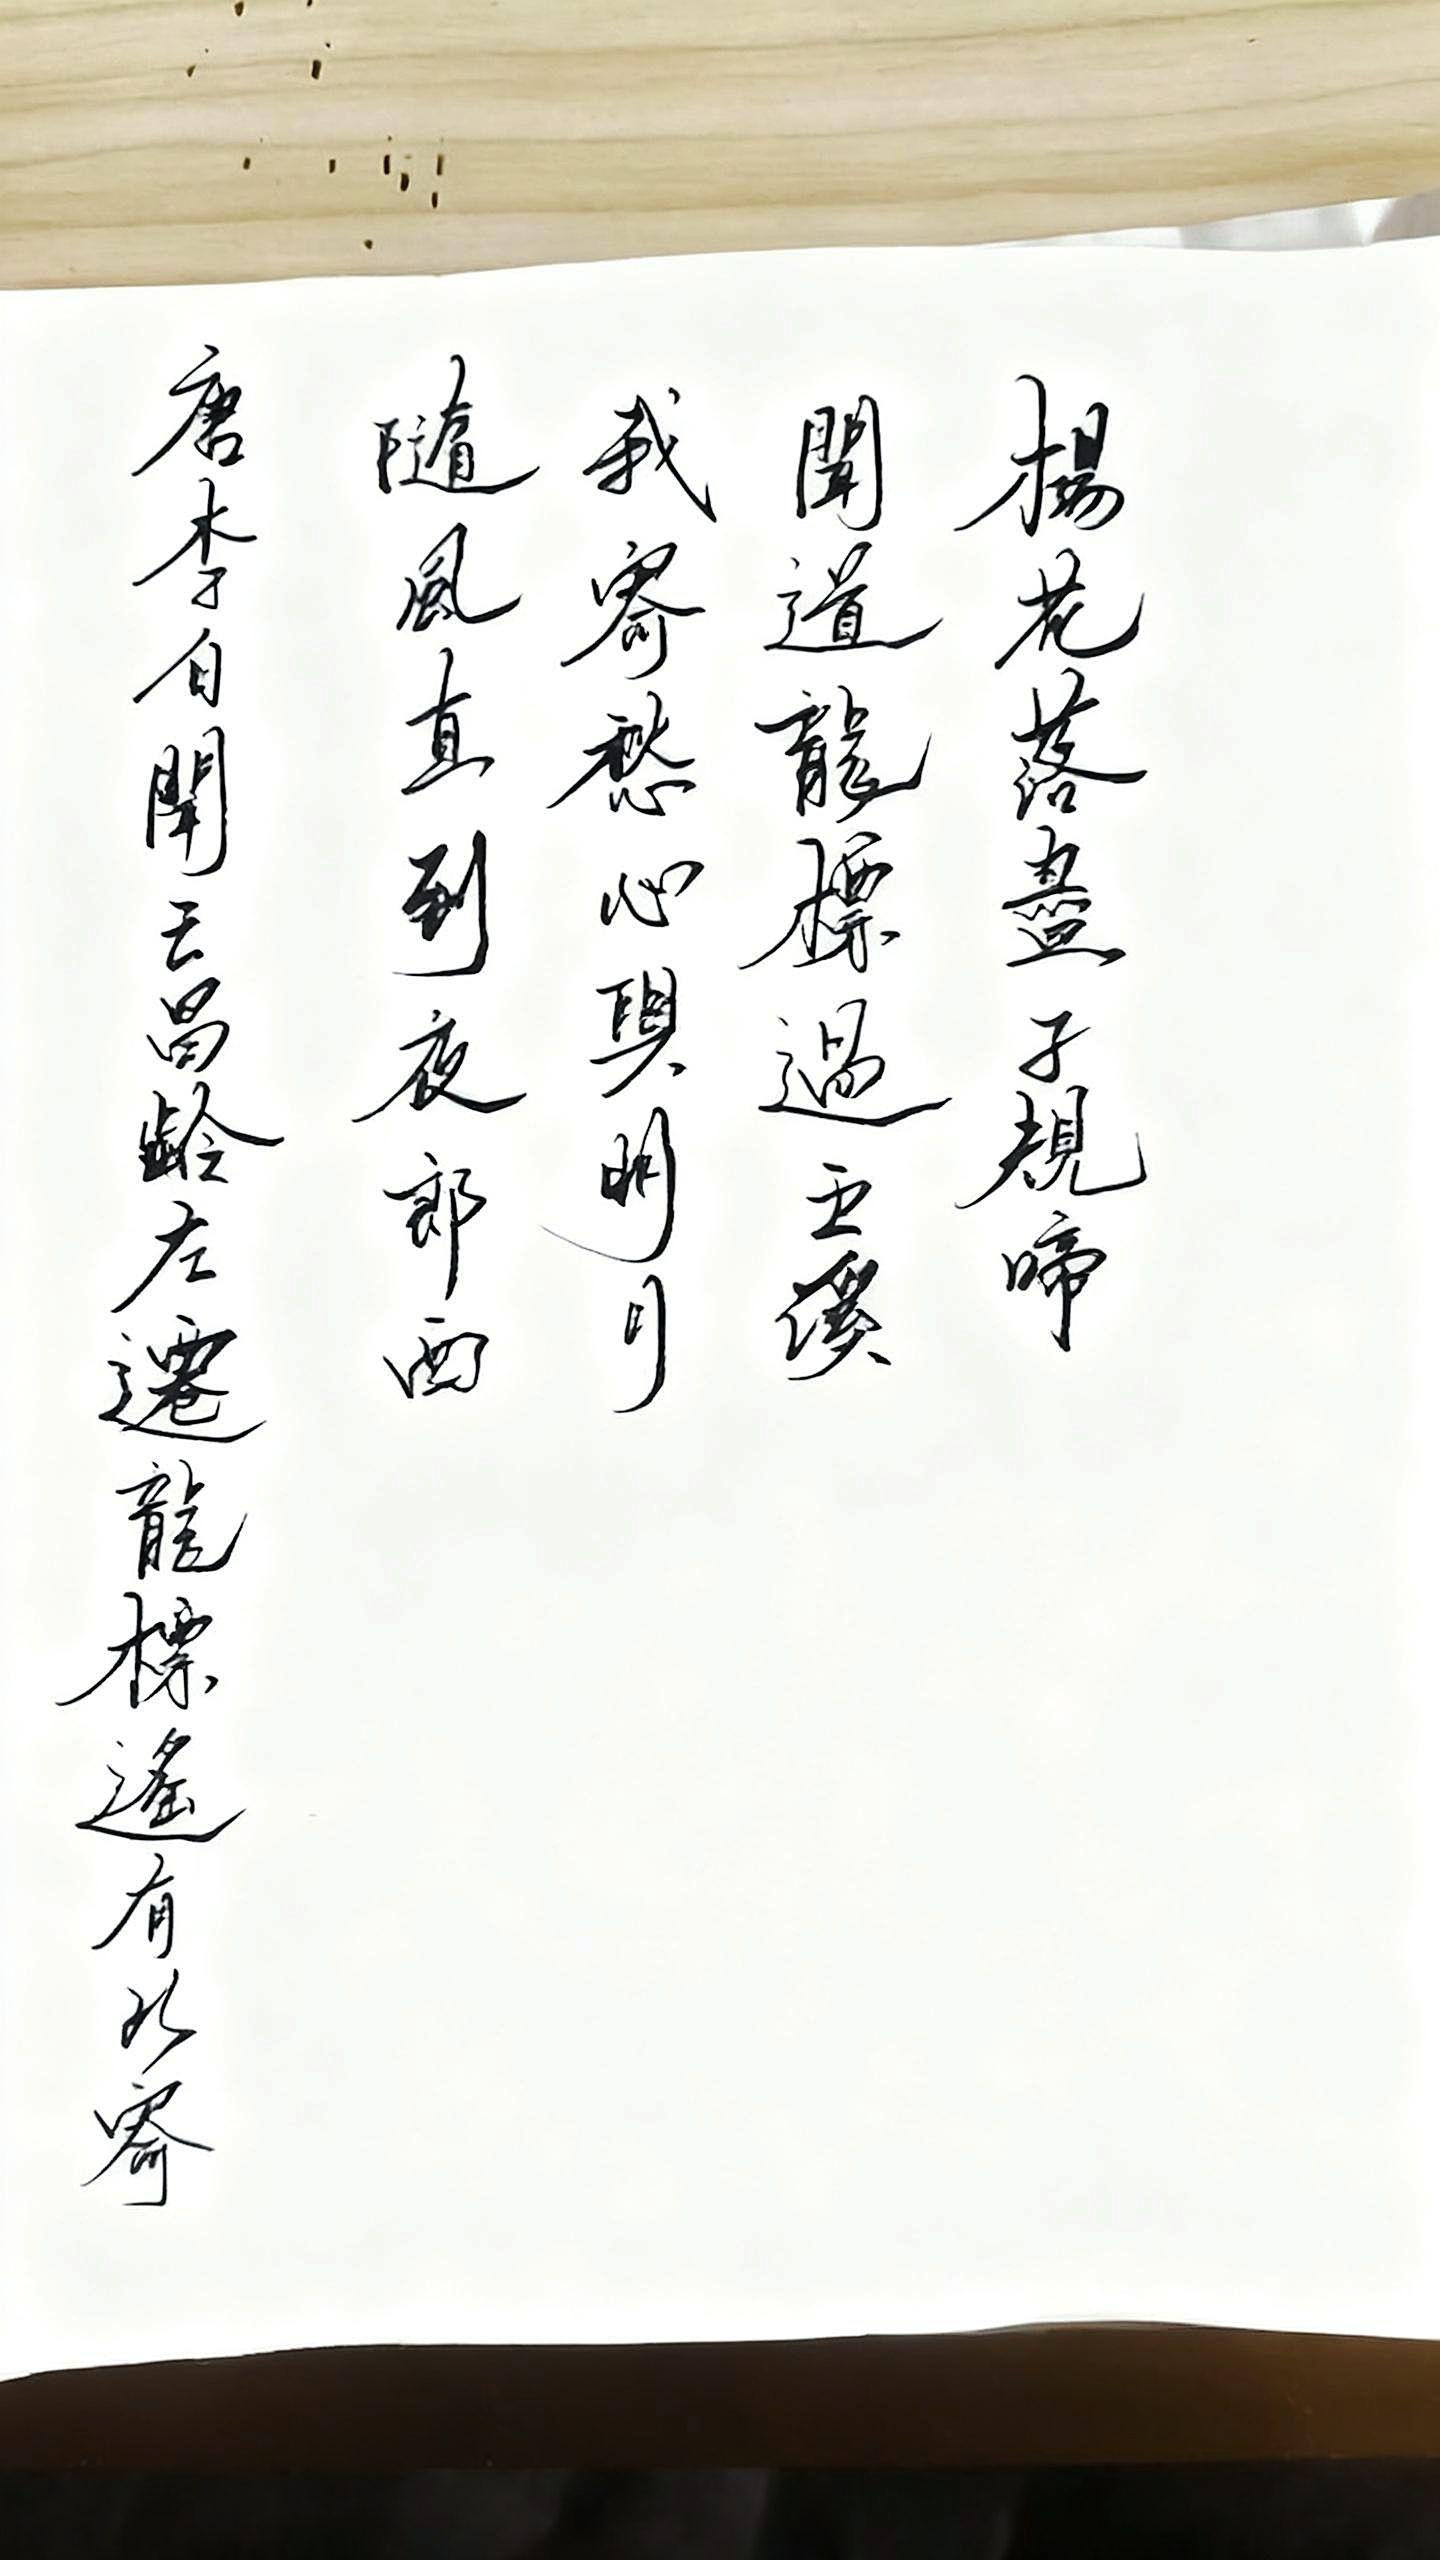 楊花落盡子規啼
聞道龍標過五溪
我寄愁心與明月
隨風直到夜郎西
唐李白聞王昌齡左遷龍標遙有此寄